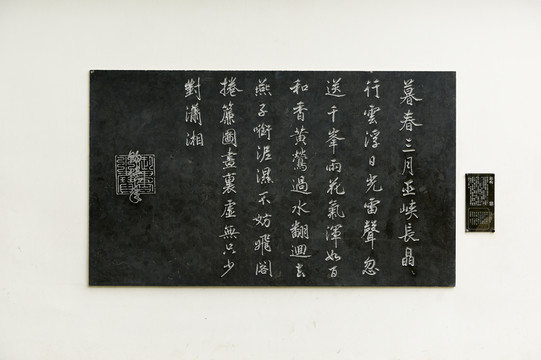 暮春三月巫峽長晶〻
行雲浮日光雷聲忽
送千峯雨花氣渾如百
和香黃鶯過水翻迴去
燕子啣泥濕不妨飛閣
捲簾圖畫裏虛無只少
對瀟湘